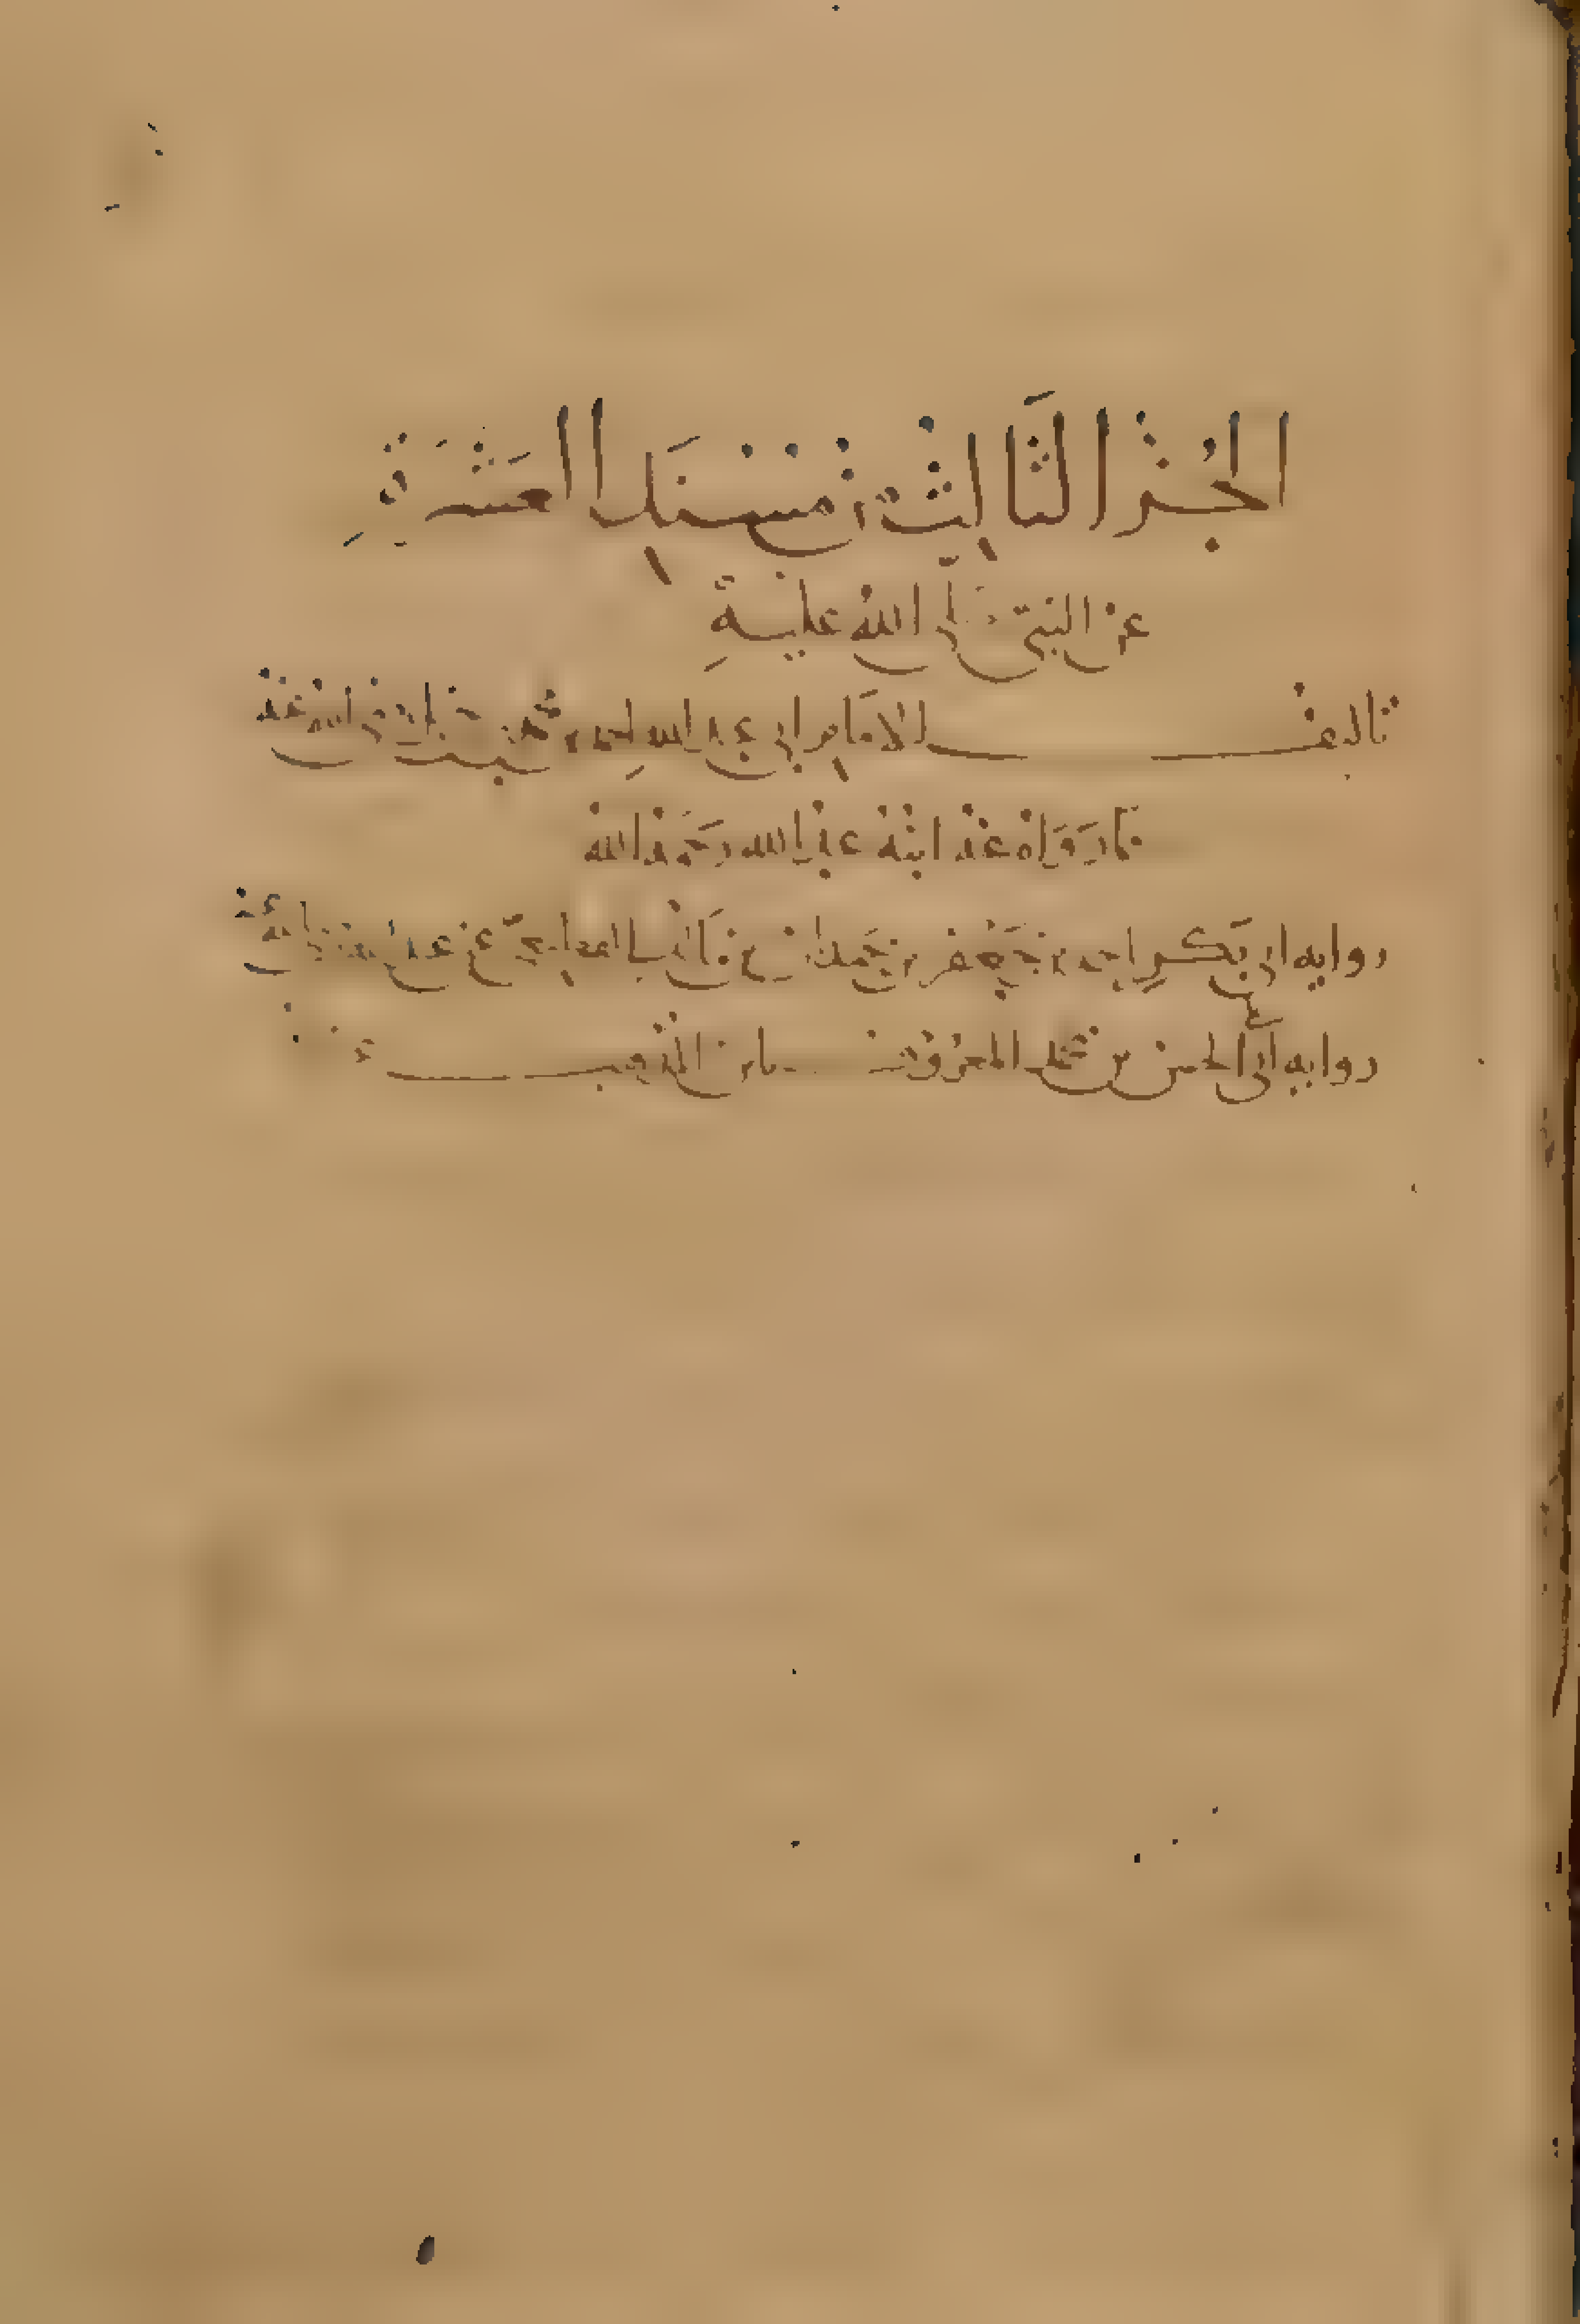 الجُزْءُ الثَّالِثُ مِنْ مُسْنَدِ العَشَرَةِ
عن النبيّ صلى اللهُ عليهِ
تاليف الامام ابي عبد الله احمد بن محمد بن حنبل رضي الله عنه
مما رَوَاهُ عنه ابنُهُ عبد الله رحمه الله
روايه ابي بَكر احمد بن جَعْفر بن حَمدان بن مَالك القطيعي عن عبد الله
روايه ابي علي الحسن بن المعروف بابن المذهب عنه